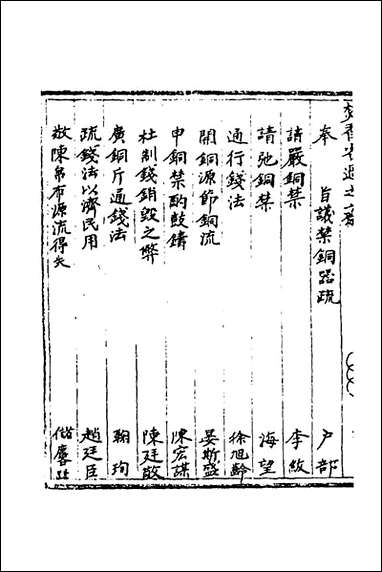 奉　旨議禁銅器疏　户部
請嚴銅禁　李紱
請弛銅禁　海望
通行錢法　徐旭齡
開銅源節銅流　晏斯盛
申銅禁酌鼓鑄　陳宏謀
杜制錢銷毁之弊　陳廷敬
廣銅斤通錢法　鞠珣
疏錢法以濟民用　趙廷臣
敬陳帛布源流得失　儲麐趾